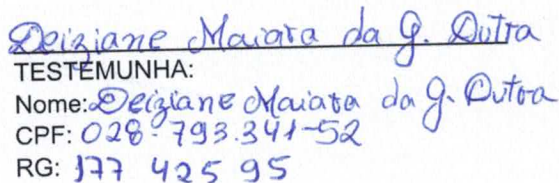 Deiziane Maiara da G. Dutra
TESTEMUNHA:
Nome: Deiziane Maiara da G. Dutra
CPF: 028-793.341-52
RG: 177 425 95